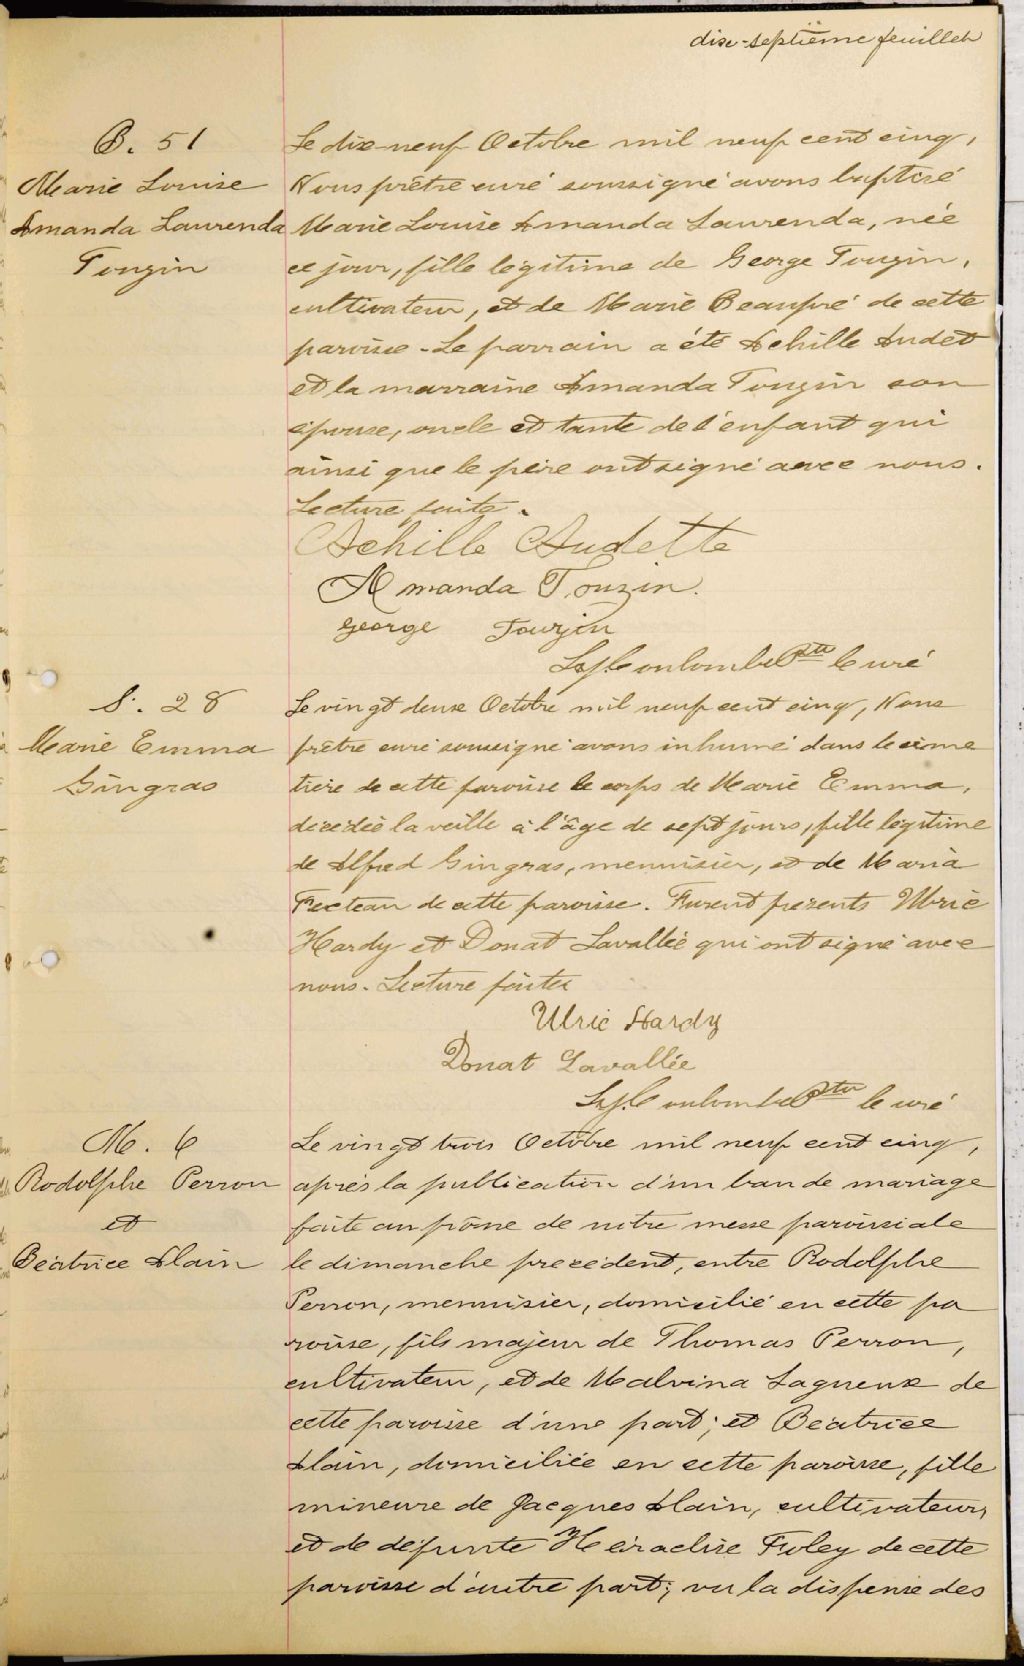 dix-septième feuillet
B. 51
Marie Louise
Amanda Laurenda
Touzin
Le dix-neuf Octobre mil neuf cent cinq,
Nous prêtre curé soussigné avons baptisé
Marie Louise Amanda Laurenda, née
ce jour, fille légitime de George Touzin,
cultivateur, et de Marie Beaupré de cette
paroisse - Le parrain a été Achille Audet
et la marraine Amanda Touzin son
épouse, oncle et tante de l'enfant qui
ainsi que le père ont signé avec nous.
Lecture faite.
Achille Audette
Amanda Touzin.
George Touzin
Coulombe Ptre Curé
S. 28
Marie Emma
Gingras
Le vingt deux Octobre mil neuf cent cinq, Nous
prêtre curé soussigné avons inhumé dans le cime
tière de cette paroisse le corps de Marie Emma,
décédée la veille à l'âge de sept jours, fille légitime
de Alfred Gingras, menuisier, et de Maria
Fecteau de cette paroisse. Furent présents Ulric
Hardy et Donat Lavallée qui ont signé avec
nous. Lecture faite
Ulric Hardy
Donat Lavallée
Coulombe Ptre Curé
M. 6
Rodolphe Perron
et
Béatrice Alain
Le vingt trois Octobre mil neuf cent cinq,
après la publication d'un ban de mariage
faite au prône de notre messe paroissiale
le dimanche précédent, entre Rodolphe
Perron, menuisier, domicilié en cette pa
roisse, fils majeur de Thomas Perron,
cultivateur, et de Malvina Lagueux de
cette paroisse d'une part; et Béatrice
Alain, domiciliée en cette paroisse, fille
mineure de Jacques Alain, cultivateur,
et de défunte Héraclise Foley de cette
paroisse d'autre part; vu la dispense des